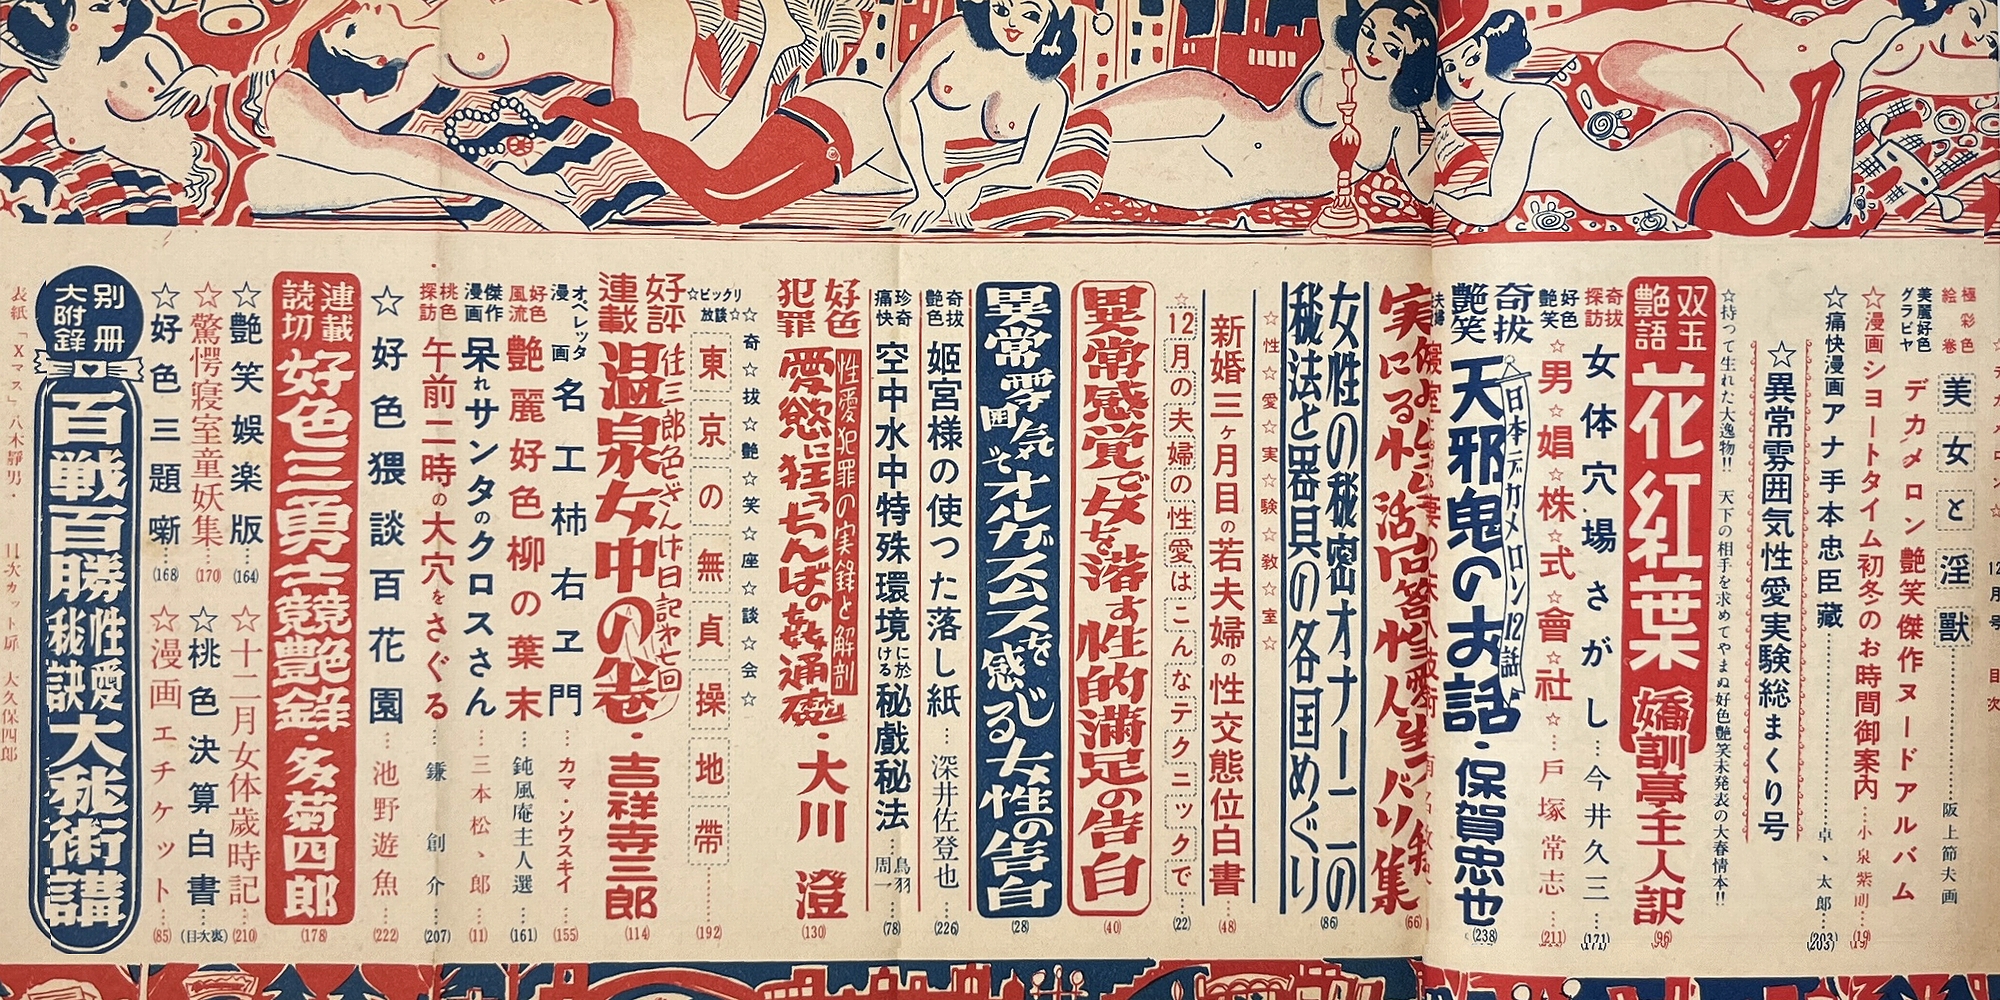 12月号
目次
極彩色
絵巻
美女と淫獣
阪上節夫画
美麗好色
グラビヤ
デカメロン艶笑傑作ヌードアルバム
(19)
☆漫画ショートタイム初冬のお時間御案内
小泉紫明
☆痛快漫画アナ手本忠臣藏
卓、太郎
(203)
☆異常雰囲気性愛実験総まくり号
☆持つて生れた大逸物!! 天下の相手を求めてやまぬ好色艶笑未発表の大春情本!!
双玉
艶語
花紅葉
嬌訓亭主人訳
(96)
奇抜
探訪
女体穴場さがし
今井久三
(171)
好色
艶笑
☆男☆娼☆株☆式☆會☆社☆
戸塚常志
(211)
奇抜
艶笑
日本デカメロン12話
天邪鬼のお話・保賀忠也
(238)
(66)
女性の秘密オナニーの
秘法と器具の各国めぐり
(86)
☆性☆愛☆実☆験☆教☆室☆
新婚三ヶ月目の若夫婦の性交態位白書
(48)
☆12月の夫婦の性愛はこんなテクニックで
(22)
異常感覚で女を落す性的満足の告白
(40)
異常雰囲気でオルガズムスを感じる女性の告白
(28)
奇抜
艶色
姫宮様の使つた落し紙
深井佐登也
(226)
珍奇
痛快
空中水中特殊環境に於ける秘戯秘法
鳥羽周一
(78)
好色
犯罪
性愛犯罪の実録と解剖
愛慾に狂うちんばの姦通魔・大川澄
(130)
☆奇☆抜☆艶☆笑☆座☆談☆会☆
☆ビックリ
放談☆
東京の無貞操地帯
(192)
好評
連載
佳三郎色ざんげ日記第七回
温泉女中の巻・吉祥寺三郎
(114)
オペレッタ
漫画
名工柿右ヱ門
カマ・ソウスキイ
(155)
好色
風流
艶麗好色柳の葉末
鈍風庵主人選
(161)
傑作
漫画
呆れサンタのクロスさん
三本松、郎
(11)
桃色
探訪
午前二時の大穴をさぐる
鎌創介
(207)
☆好色猥談百花園
池野遊魚
(222)
連載
読切
好色三勇士競艶録・多菊四郎
(178)
☆艶笑娯楽版
(164)
☆十二月女体歳時記
(210)
☆驚愕寝室童妖集
(170)
☆桃色決算白書
(目次裏)
☆好色三題噺
(168)
☆漫画エチケット
(85)
別冊
大附録
百戦百勝性愛秘訣大秘術講
表紙「Xマス」八木靜男・
目次カット・扉 大久保四郎